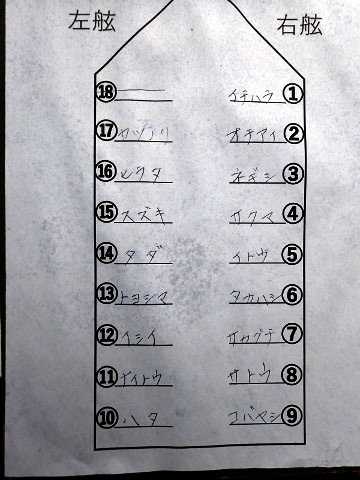 左舷 右舷
⑱ ― イチハラ ①
⑰ オチアイ ②
⑯ ヒラタ ネギシ ③
⑮ スズキ サクマ ④
⑭ タダ イトウ ⑤
⑬ トヨシマ タカハシ ⑥
⑫ イシイ サカグチ ⑦
⑪ ナイトウ サトウ ⑧
⑩ ハタ コバヤシ ⑨